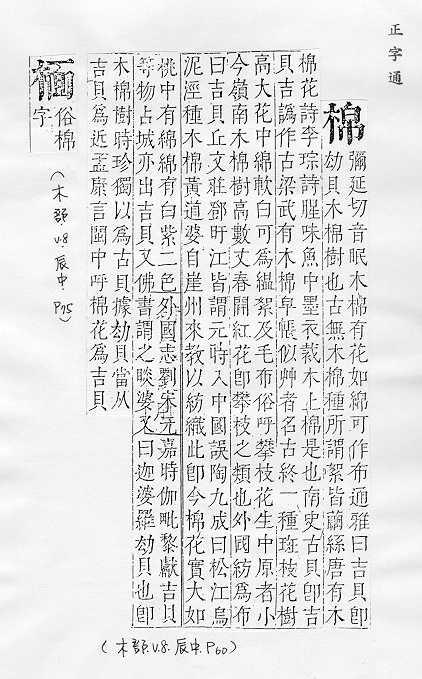 正字通
棉
彌延切音眠木棉有花如綿可作布通雅曰吉貝卽
劫貝木棉樹也古無木棉種所謂絮皆繭絲唐有木
棉花詩李琮詩腥味魚中墨衣裁木上棉是也南史古貝卽吉
貝吉譌作古梁武有木棉皁帳似艸者名古終一種斑枝花樹
高大花中綿軟白可爲縕絮及毛布俗呼攀枝花生中原者小
今嶺南木棉樹高數丈春開紅花卽攀枝之類也外國紡爲布
曰吉貝丘文莊鄧盱江皆謂元時入中國誤陶九成曰松江烏
泥涇種木棉黃道婆自崖州來敎以紡織此卽今棉花實大如
桃中有綿綿有白紫二色外國志劉宋元嘉時伽毗黎獻吉貝
等物占城亦出吉貝又佛書謂之睒婆又曰迦婆羅劫貝也卽
木棉樹時珍獨以爲古貝據劫貝當从
吉貝爲近孟康言閩中呼棉花爲吉貝
俗棉
字
(木部.v.8.辰中.P75)
(木部.v.8.辰中.P60)